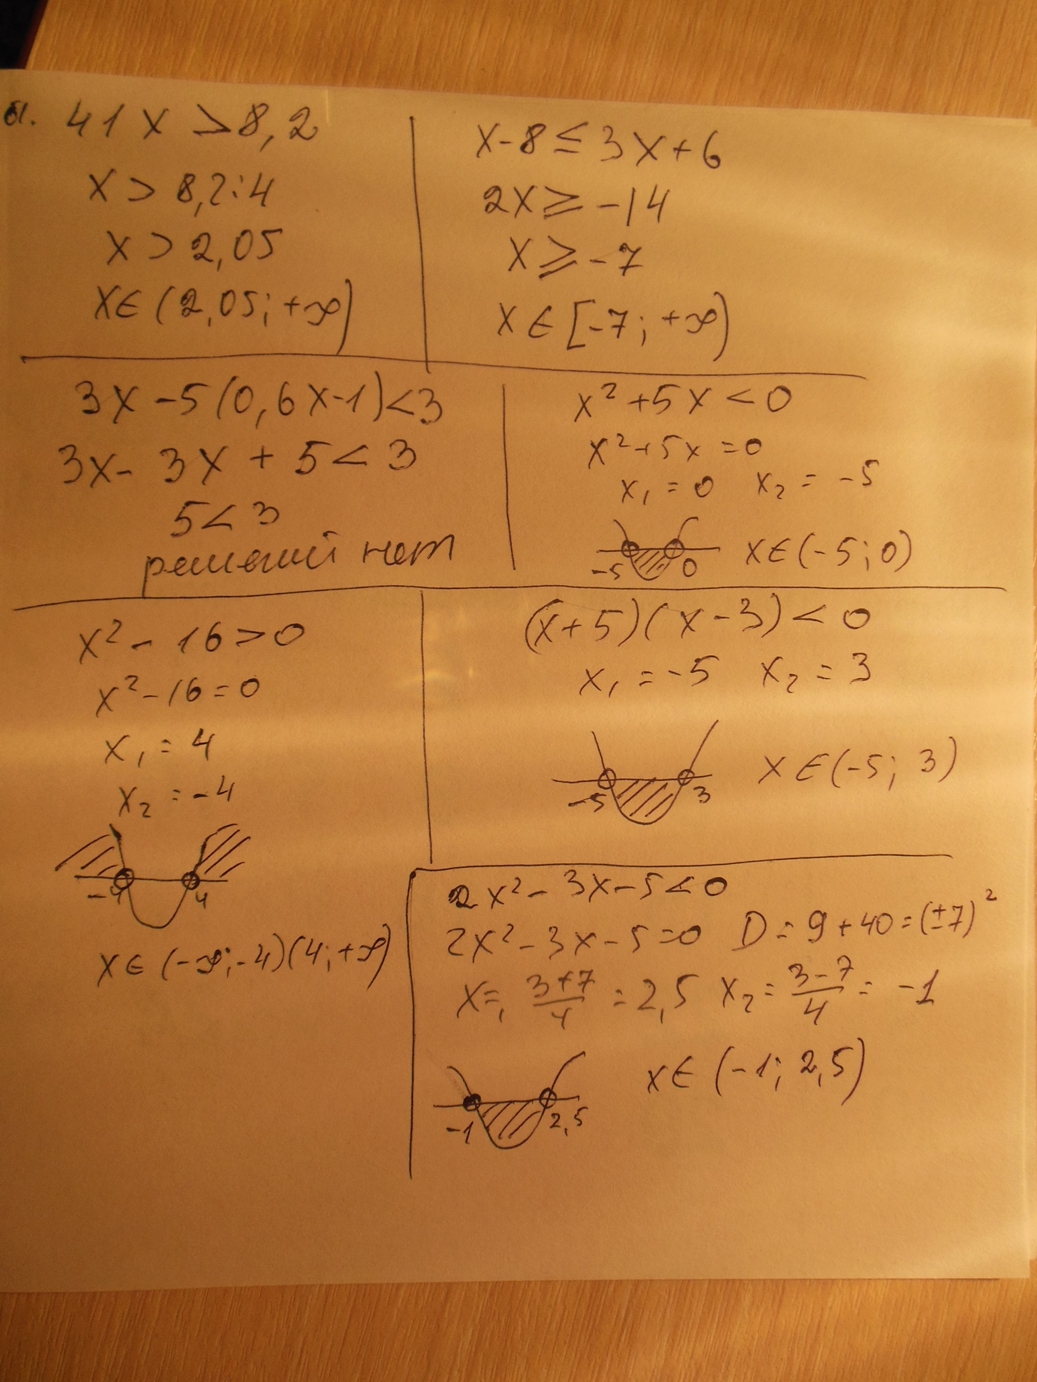 41x > 8,2
x > 8,2:4
x > 2,05
x ∈ (2,05; +∞)
x-8 ≤ 3x+6
2x ≥ -14
x ≥ -7
x ∈ [-7; +∞)
3x -5(0,6x-1)<3
3x- 3x + 5 < 3
5 < 3
решений нет
x² +5x < 0
x²+5x = 0
x₁ = 0 x₂ = -5
-5 0 x∈(-5;0)
x² - 16 > 0
x²-16=0
x₁ = 4
x₂ = -4
-4 4
x∈(-∞;-4)(4;+∞)
(x+5)(x-3) < 0
x₁ = -5 x₂ = 3
-5 3 x∈(-5; 3)
2x² - 3x-5 < 0
2x²-3x-5=0 D = 9+40=(±7)²
x=₁ 3+7/4 = 2,5 x₂ = 3-7/4 = -1
-1 2,5 x∈ (-1; 2,5)